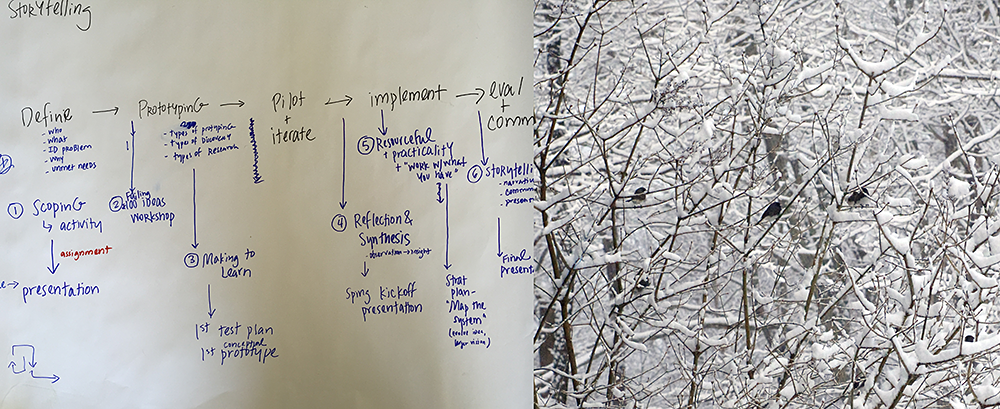 Storytelling
Define → Prototyping → Pilot + iterate → implement → eval + comm
- who
- what
- ID problem
- why
- unmet needs
- types of protyping
- types of Discovery
- types of Research
① Scoping
↳ activity
assignment
presentation
② Failing
100 ideas
Workshop
③ Making to
Learn
1st test plan
conceptual
1st prototype
④ Reflection &
Synthesis
- observation → insight
Sping kickoff
presentation
⑤ Resourceful
+ practicality
+ "work w/what
you have"
Strat
plan-
"Map the
system"
⑥ Storytelli
- narrativ
- comm
- presen
Final
present